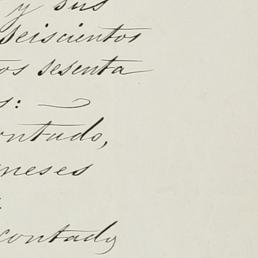 y sus
seiscientos
os sesenta
s:
ontado,
meses
contado